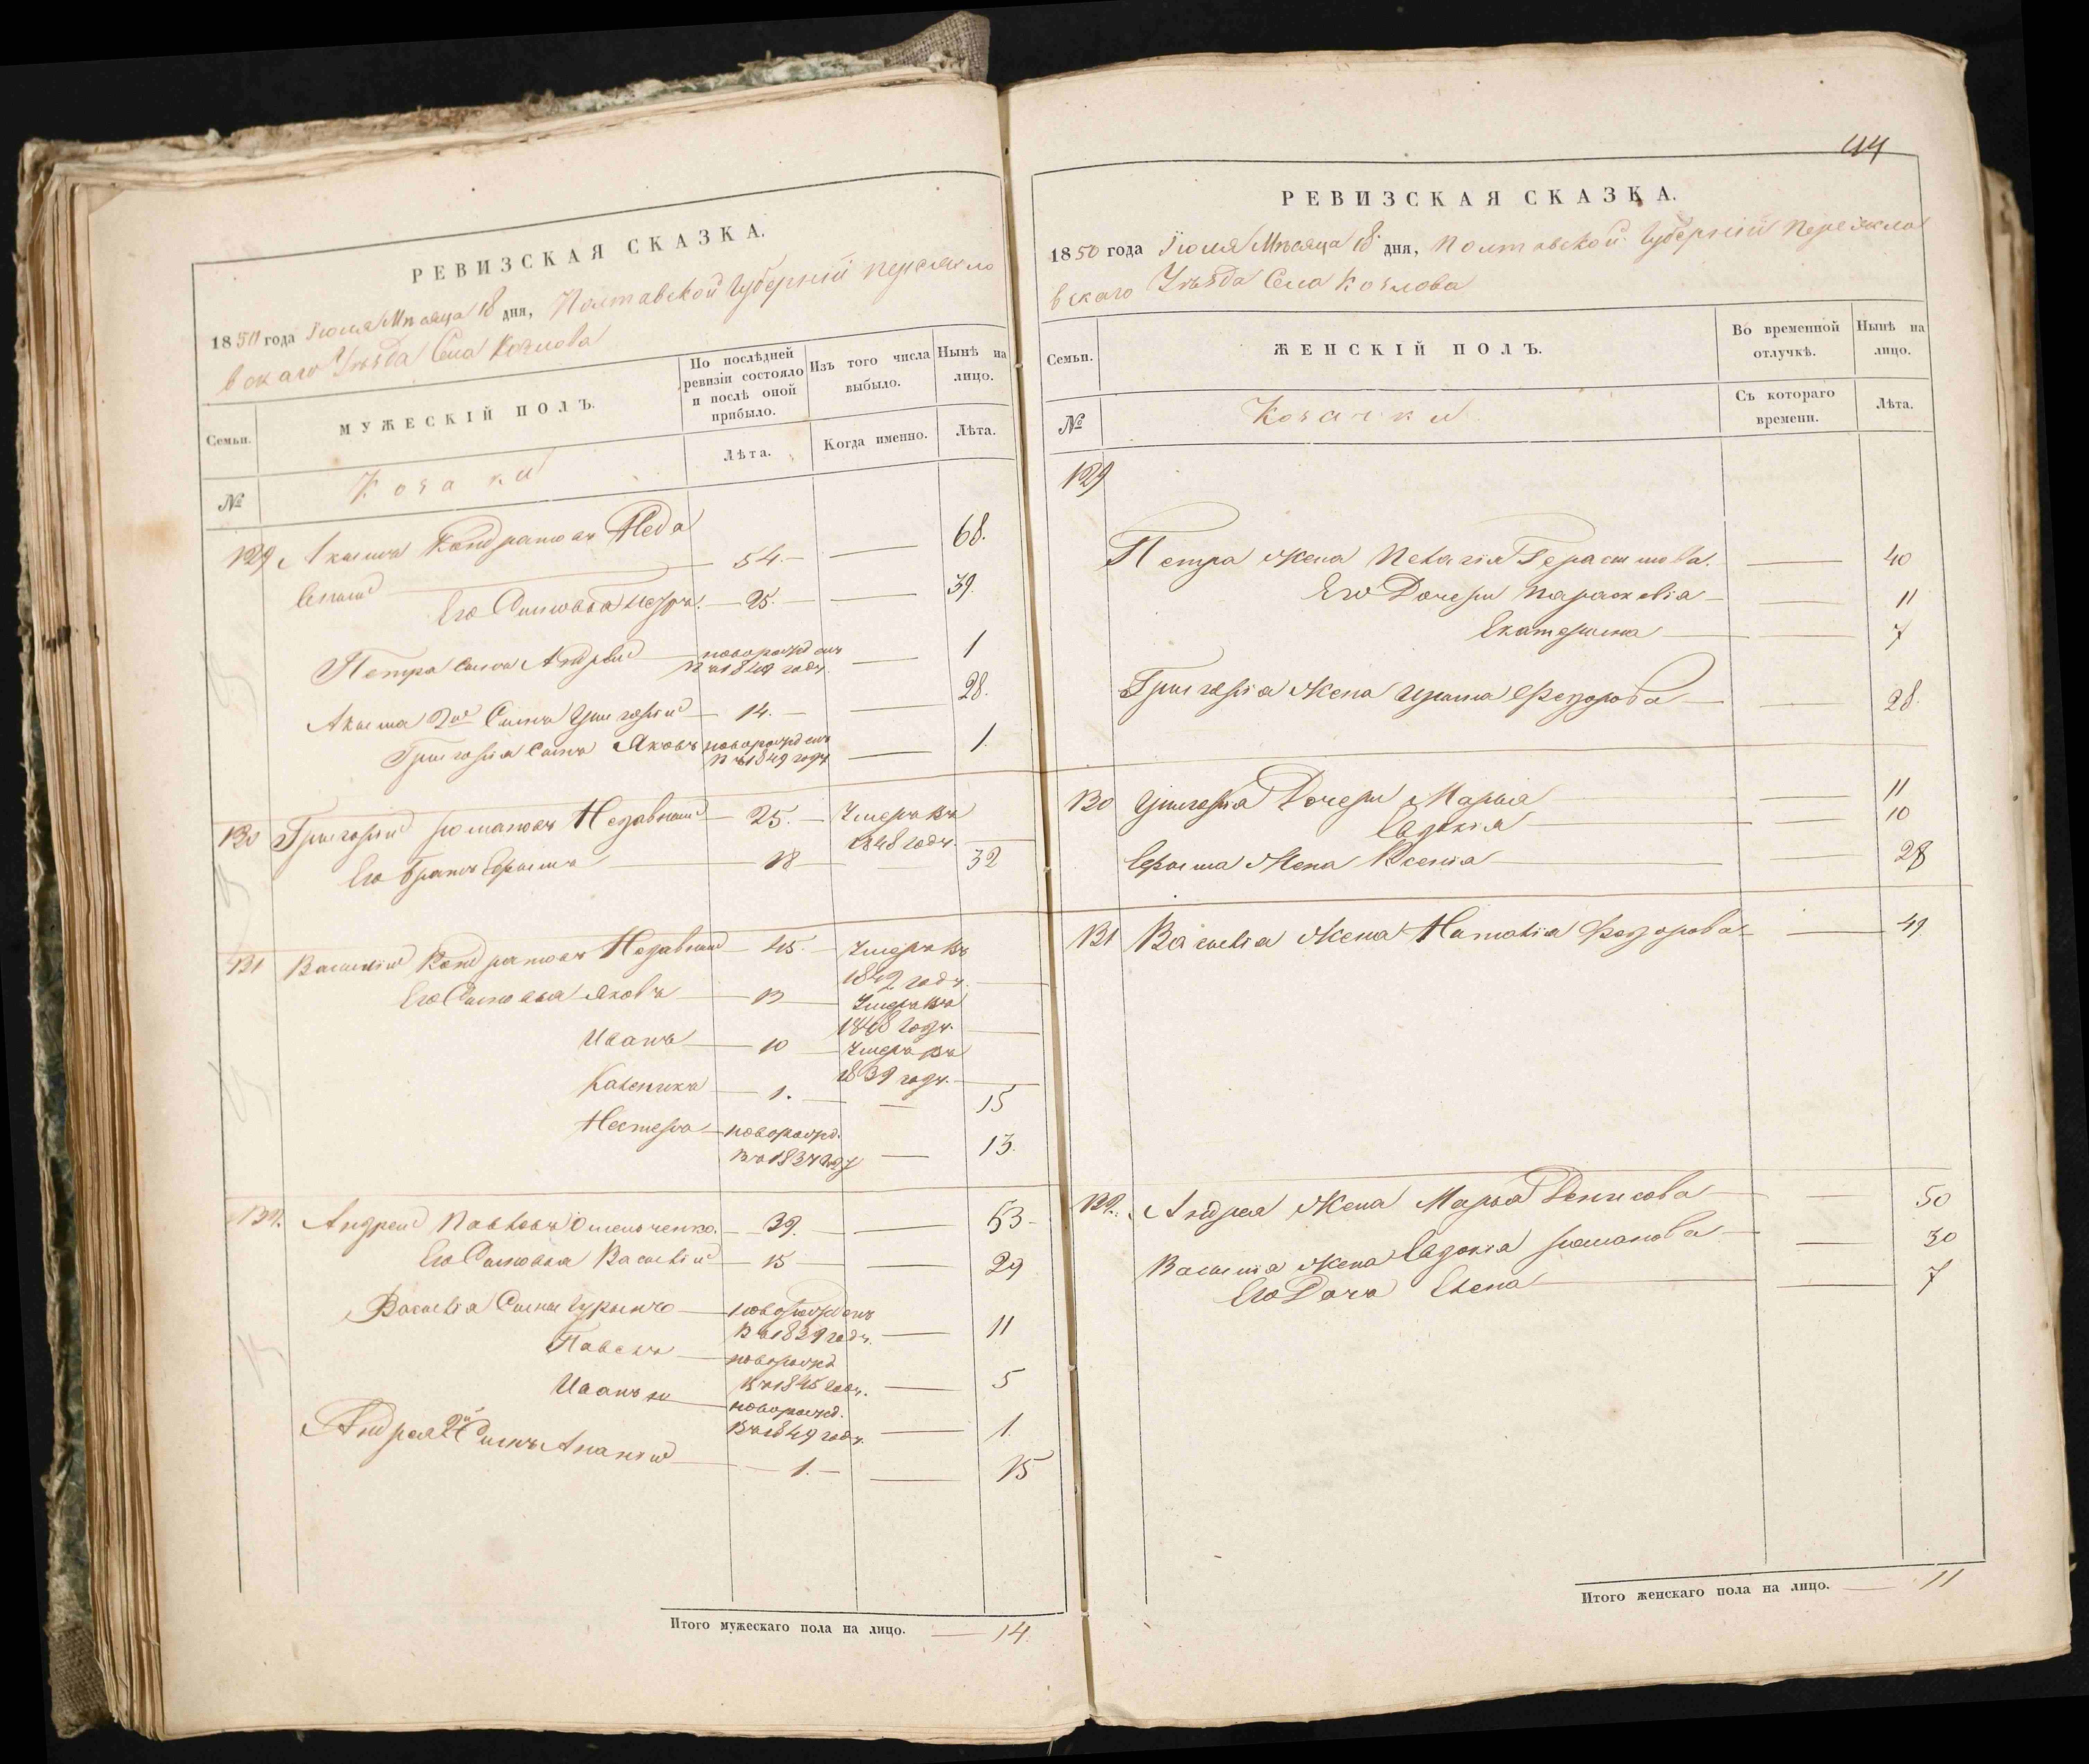 РЕВИЗСКАЯ СКАЗКА.
1850 года Іюля Мѣсяца 18 дня, Полтавской Губерніи Переясло
вскаго Уѣзда Села Козлова
Семьи.
МУЖЕСКІЙ ПОЛЪ.
По послѣдней ревизіи состояло и послѣ оной прибыло.
Изъ того числа выбыло.
Нынѣ на лицо.
№
Козаки
Лѣта.
Когда именно.
Лѣта.
129 Акима Кондратовъ Неда
вній — 54. — 68.
Его Сыновья Петръ. — 25. — 39.
Петра Сынъ Андрей — новорожденъ въ 1849 году. — 1
Акима 2й Сынъ Григорій — 14. — 28.
Григорія Сынъ Яковъ новорожденъ въ 1849 году — 1.
130 Григорій Романовъ Недавній — 25. — Умеръ въ 1848 году.
Его Братъ Ефимъ — 18 — 32
131 Василій Кондратовъ Недавній — 45. — Умеръ въ 1842 году.
Его Сыновья Яковъ — 13 — Умеръ въ 1848 году.
Иванъ — 10 — Умеръ въ 1839 году.
Каленикъ — 1. — 15
Нестеръ — новорожд. въ 1837 году — 13.
132. Андрей Павловъ Омельченко. — 39. — 53 -
Его Сыновья Василій — 15 — 29
Василія Сыны — новорожденъ въ 1839 году. — 11
Павелъ — новорожд въ 1845 году. — 5
Иванъ — новорожд. въ 1849 году. — 1.
Андрея 2й Сынъ Ананій — 1. — 15
Итого мужескаго пола на лицо. — 14.
44
РЕВИЗСКАЯ СКАЗКА.
1850 года Іюля Мѣсяца 18 дня, Полтавской Губерніи Переясло
вскаго Уѣзда Села Козлова
Семьи.
ЖЕНСКІЙ ПОЛЪ.
Во временной отлучкѣ.
Нынѣ на лицо.
№
Козачки
Съ котораго времени.
Лѣта.
129
Петра Жена Пелагія Герасимова. — 40
Его Дочери Параскевія — 11
Екатерина — 7
Григорія Жена Ирина Федорова — 28.
130 Григорія Дочери Марья — 11
Евдокія — 10
Ефима Жена Ксенія — 28
131 Василія Жена Наталія Федорова — 49
132. Андрея Жена Марья Денисова — 50
Василія Жена Евдокія Романова — 30
Его Дочь Елена — 7
Итого женскаго пола на лицо. — 11